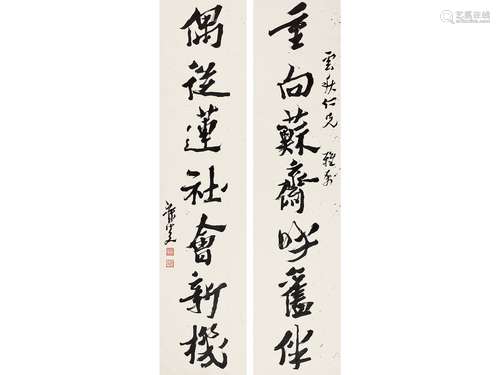 重向蘇齋呼舊伴
雲秋仁兄 雅屬
偶從蓮社會新機